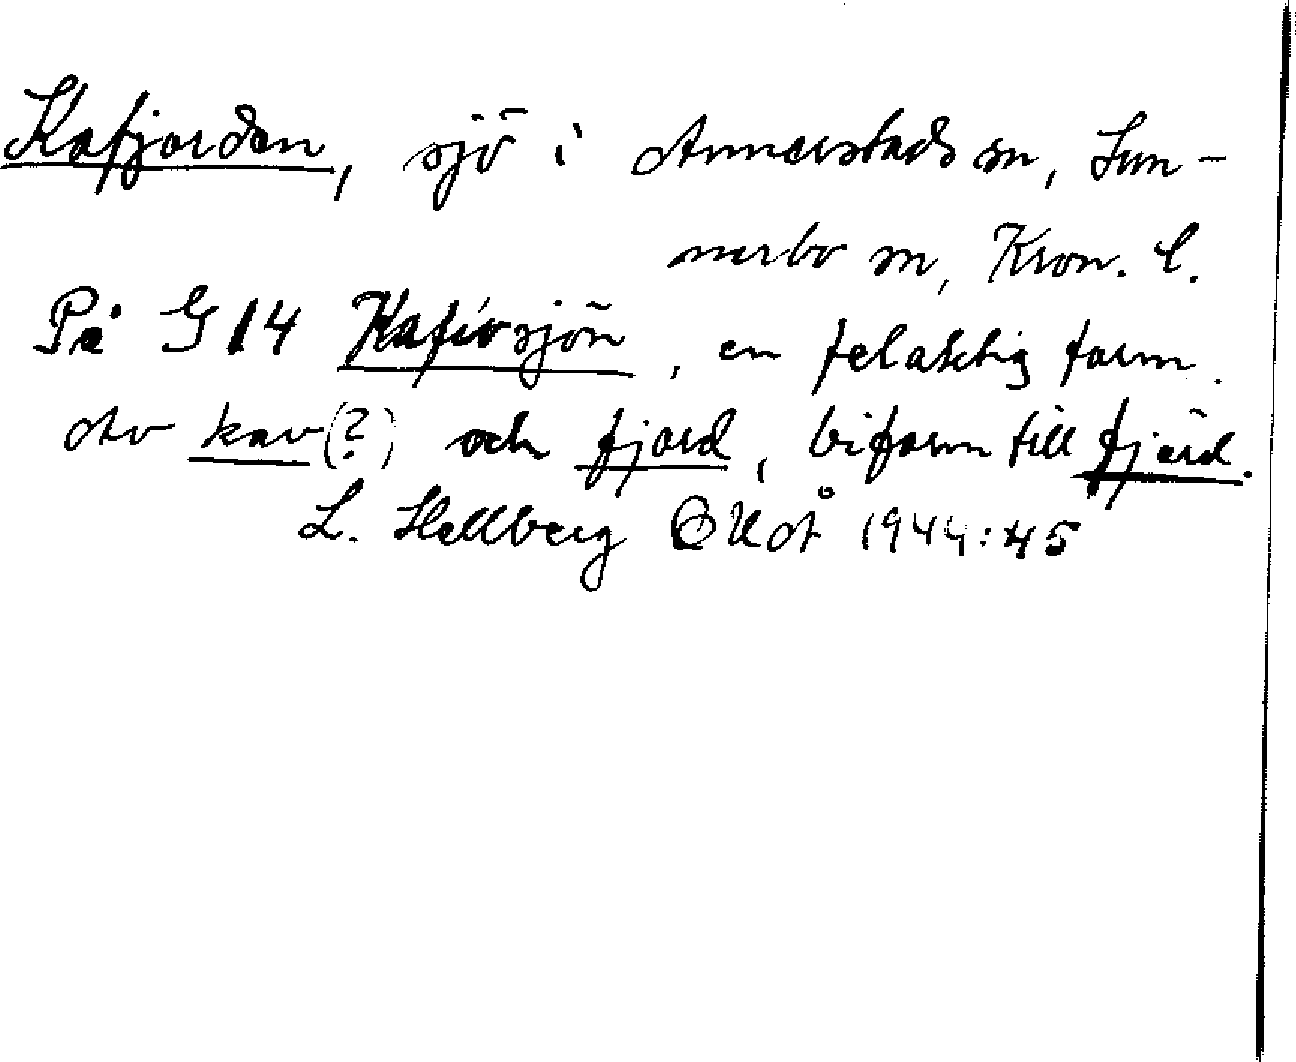 Kafjorden, sjö i Annerstads sn, Sun-
nerbo sn, Kron. l.
På G 14 Kafiorsjön, en felaktig form.
Av kav(?) och fjord, biform till fjärd.
L. Hellberg OUÅ 1944:45